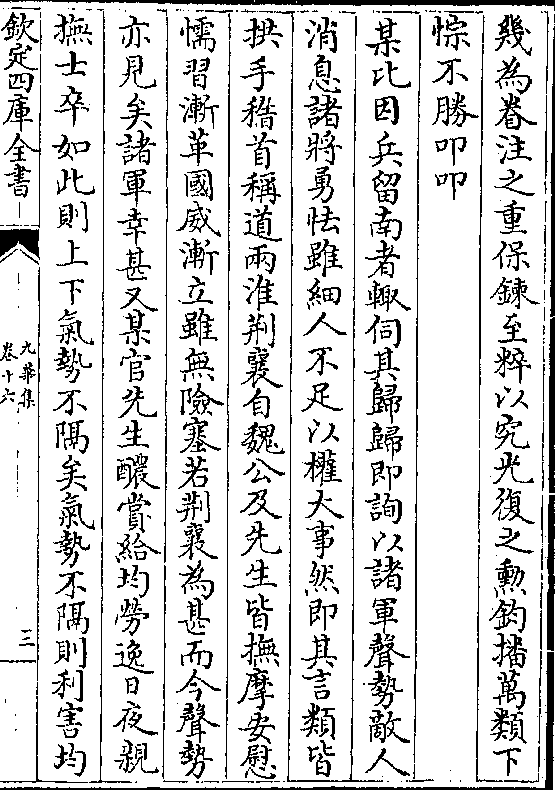 幾為眷注之重保鍊至粹以究光復之勲鈞播萬類下
悰不勝叩叩
某比因兵留南者輙伺其歸歸即詢以諸軍聲勢敵人
消息諸將勇怯雖細人不足以權大事然即其言類皆
拱手稽首稱道兩淮荆襄自魏公及先生皆撫摩安慰
懦習漸革國威漸立雖無險塞若荆襄為甚而今聲勢
亦見矣諸軍幸甚又某官先生醲賞給均勞逸日夜親
撫士卒如此則上下氣勢不隔矣氣勢不隔則利害均
欽定四庫全書
九華集
卷十六
三